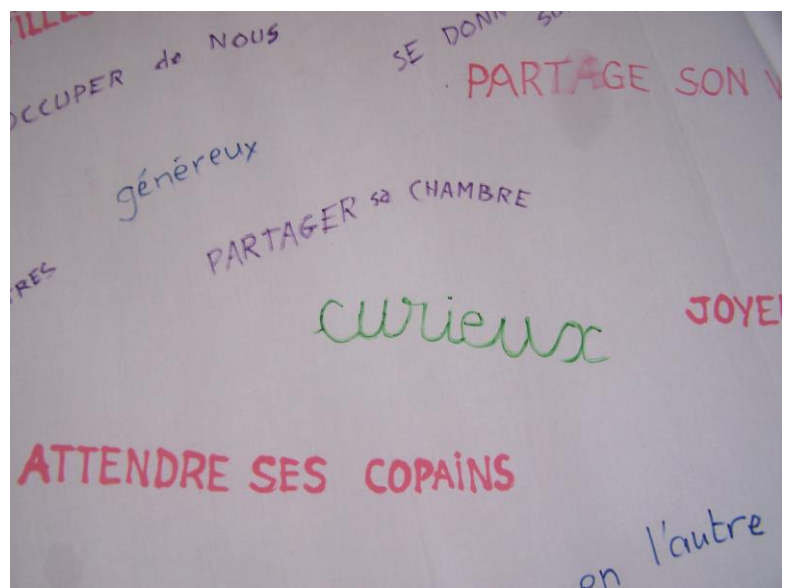 OCCUPER de NOUS
SE DONN
PARTAGE SON
généreux
PARTAGER sa CHAMBRE
curieux
JOYE
ATTENDRE SES COPAINS
en l'autre